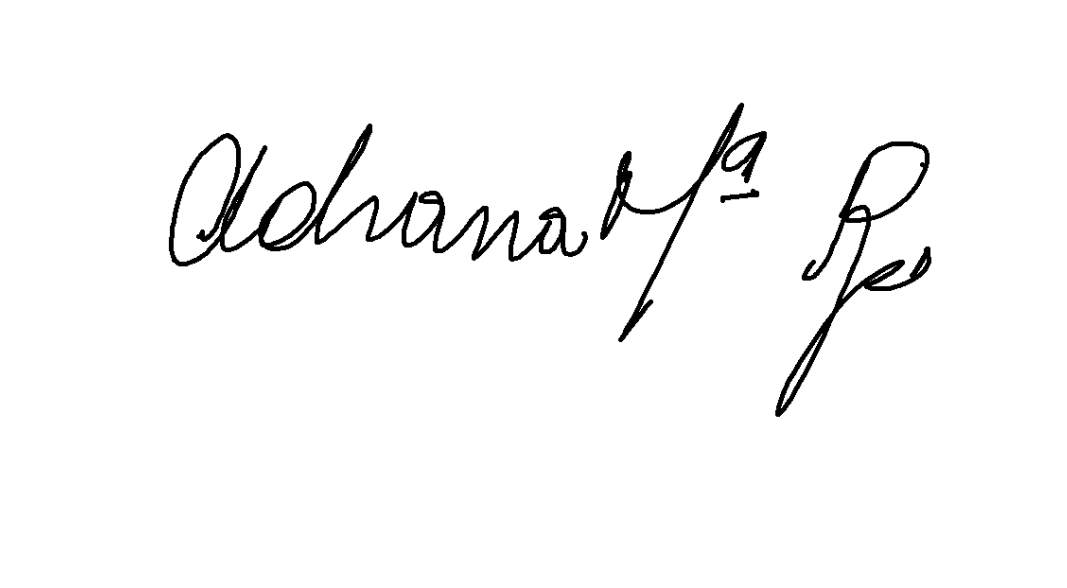 Adriana Mª